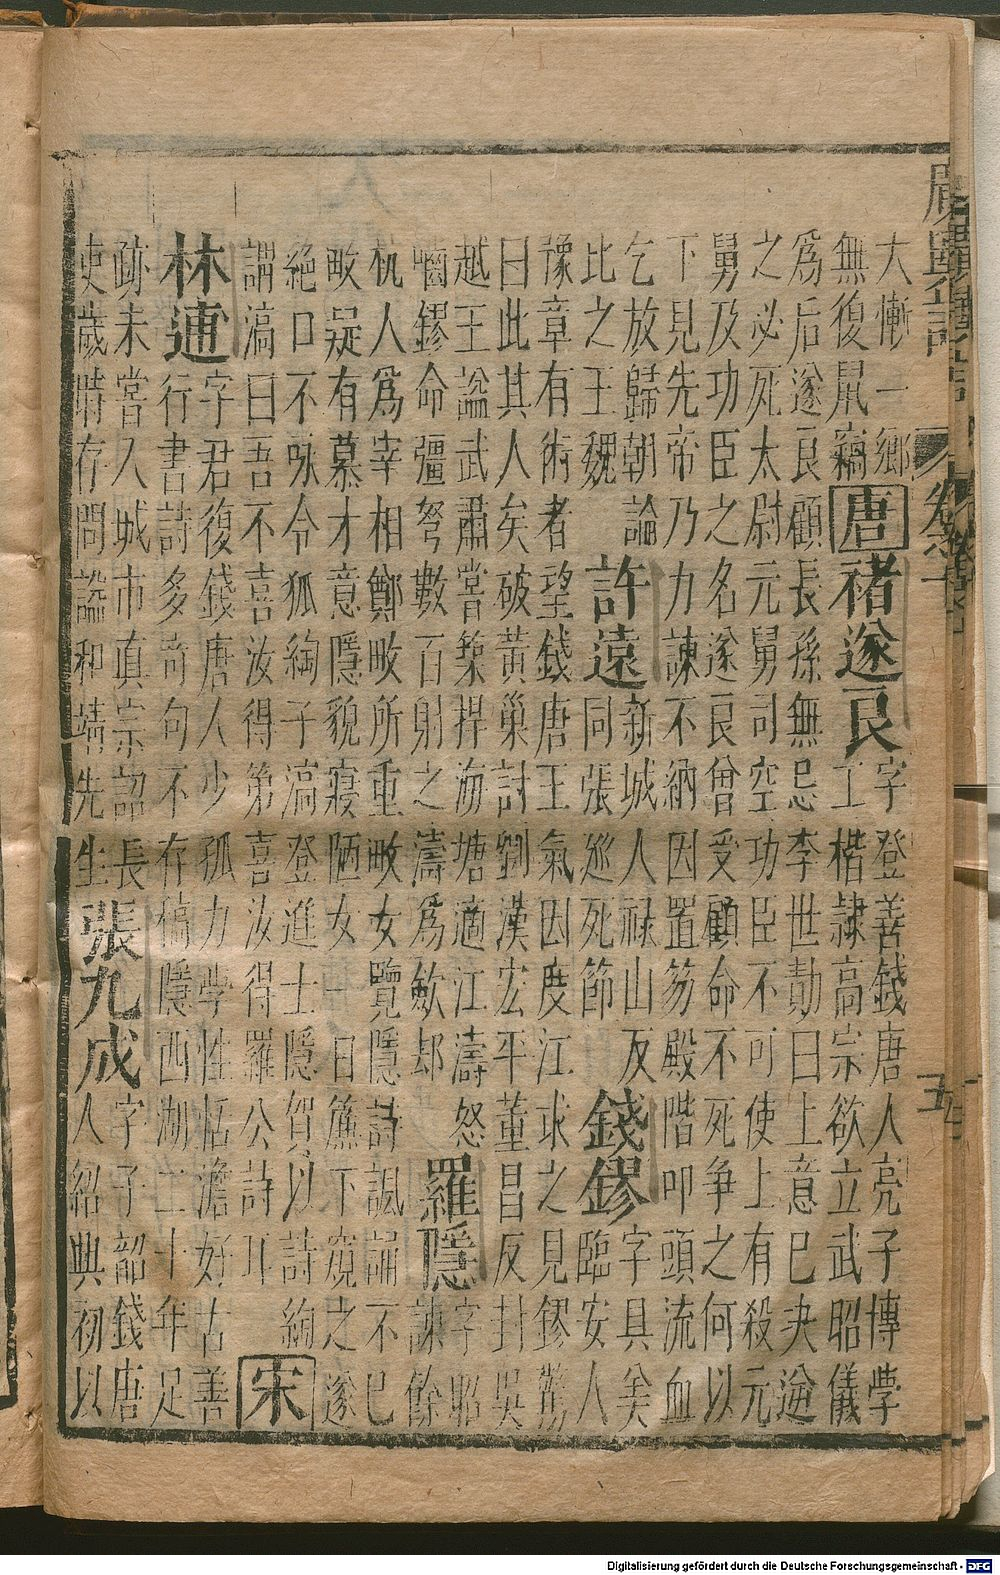 大慚一鄉
無復鼠竊
唐
褚遂良
字登善錢唐人亮子博學
工楷隸高宗欲立武昭儀
爲后遂良顧長孫無忌李世勣曰上意已夬逆
之必死太尉元舅司空功臣不可使上有殺元
舅及功臣之名遂良曾受顧命不死爭之何以
下見先帝乃力諫不納因置笏殿階叩頭流血
乞放歸朝論
比之王魏
許遠
新城人祿山反
同張巡死節
錢鏐
字具美
臨安人
豫章有術者望錢唐王氣因度江求之見鏐驚
曰此其人矣破黃巢討劉漢宏平董昌反封吳
越王謚武肅嘗築捍海塘適江濤怒
嚙鏐命彊弩數百射之濤爲歛却
羅隱
字昭
諫餘
杭人爲宰相鄭畋所重畋女覽隱詩諷誦不已
畋疑有慕才意隱貌寢陋女一日簾下窺之遂
絕口不咏令狐綯子滈登進士隱賀以詩綯
謂滈曰吾不喜汝得第喜汝得羅公詩耳
宋
林逋
字君復錢唐人少孤力學性恬澹好古善
行書詩多奇句不存稿隱西湖二十年足
跡未嘗入城市真宗詔長
吏歲時存問謚和靖先生
張九成
字子韶錢唐
人紹興初以
Digitalisierung gefördert durch die Deutsche Forschungsgemeinschaft - DFG